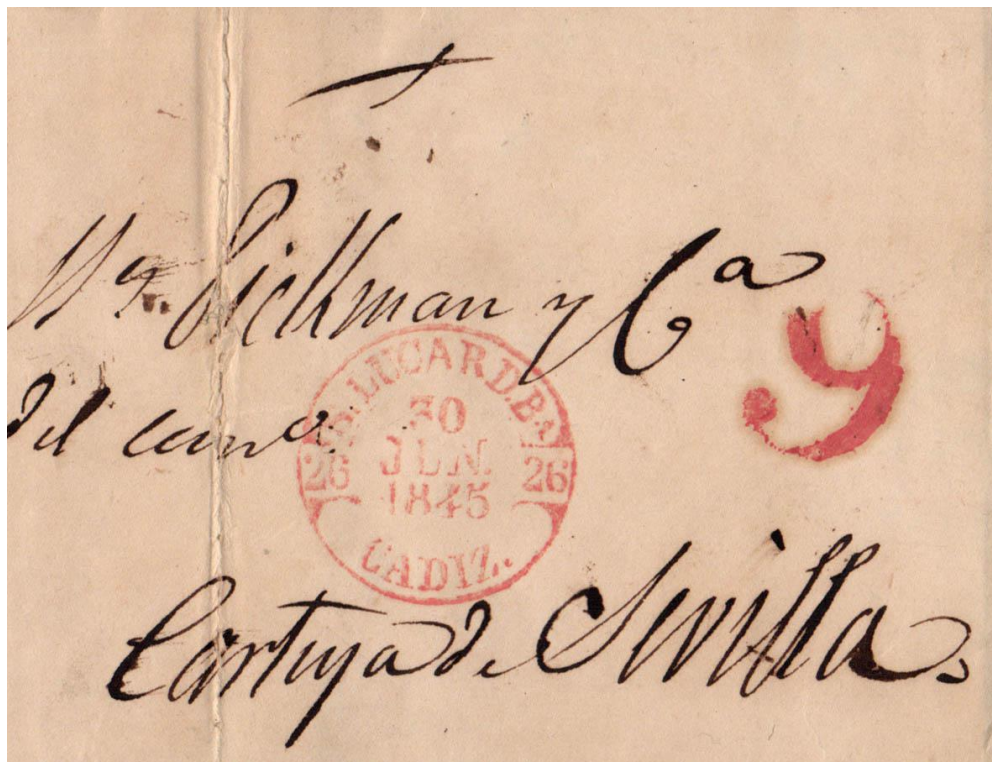 Pickman y Cª
9
del com.º
S. LUCAR D. BA.
30
JUN.
1845
26 26
CADIZ.
Cartuja de Sevilla